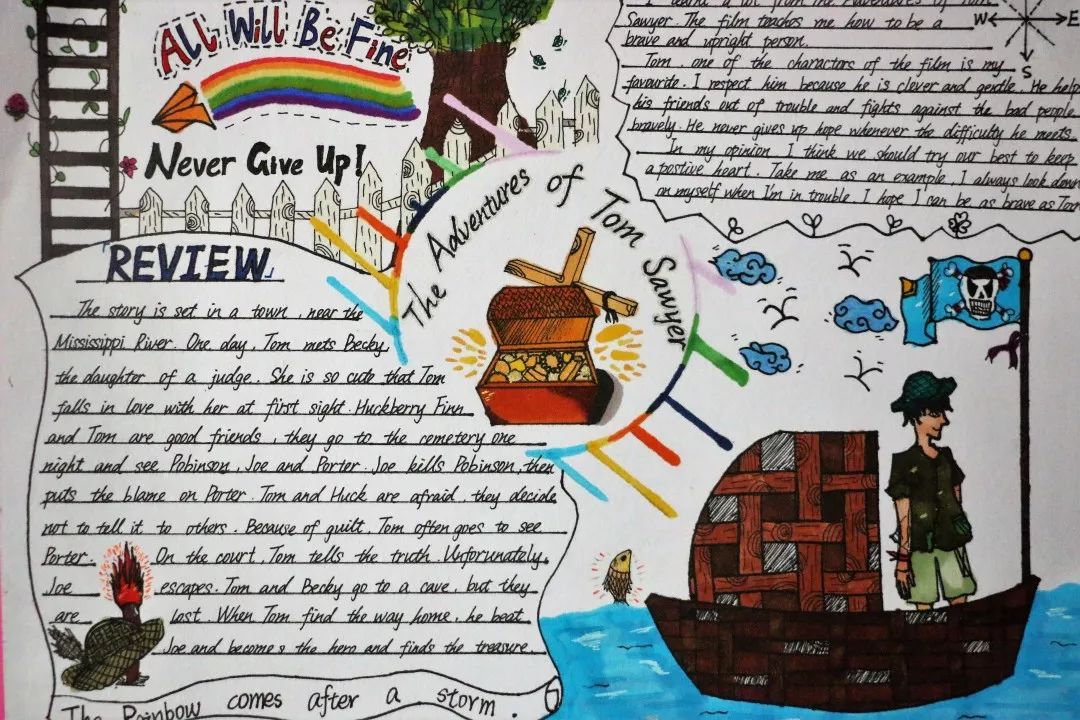 All Will Be Fine
Never Give Up!
REVIEW
The story is set in a town , near the
Mississippi River. One day, Tom mets Becky
the daughter of a judge. She is so cute that Tom
falls in love with her at first sight. Huckberry Finn
and Tom are good friends , they go to the cemetery one
night and see Pobinson, Joe and Porter. Joe kills Pobinson, then
puts the blame on Porter. Tom and Huck are afraid, they decide
not to tell it to others. Because of guilt, Tom often goes to see
Porter. On the court, Tom tells the truth. Unforunately,
Joe escapes. Tom and Becky go to a cave, but they
are lost. When Tom find the way home, he beat
Joe and becomes the hero and finds the treasure.
The Rainbow comes after a storm.
The Adventures of Tom Sawyer
I learnt a lot from the Adventures of Tom
Sawyer. The film teachs me how to be a
brave and upright person.
Tom, one of the charactors of the film is my
favourite. I respect him because he is clever and gentle. He helps
his friends out of trouble and fights against the bad people
bravely. He never gives up hope whenever the difficulty he meets.
In my opinion, I think we should try our best to keep
a postive heart. Take me as an example, I always look down
on myself when I'm in trouble. I hope I can be as brave as Tom
W E
S